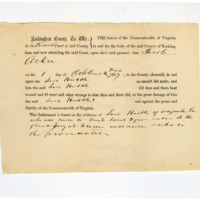 Rockingham County, To Wit: THE Jurors of the Commonwealth of Virginia,
in and for the body of the said County of Rocking-
ham and now attending the said Court, upon their oath present, that Jacob
Acker
on the 1 day of October 1867, in the County aforesaid, in and
upon one Levi Huddle an assault did make, and
him the said Levi Huddle did then and there beat
wound and ill treat and other wrongs to him then and there did, to the great damage of him
the said Levi Huddle and against the peace and
dignity of the Commonwealth of Virginia.
This Indictment is found on the evidence of Levi Huddle of Augusta Co
who was sworn in Court and sent to the
grand jury to give evidence
the prosecution